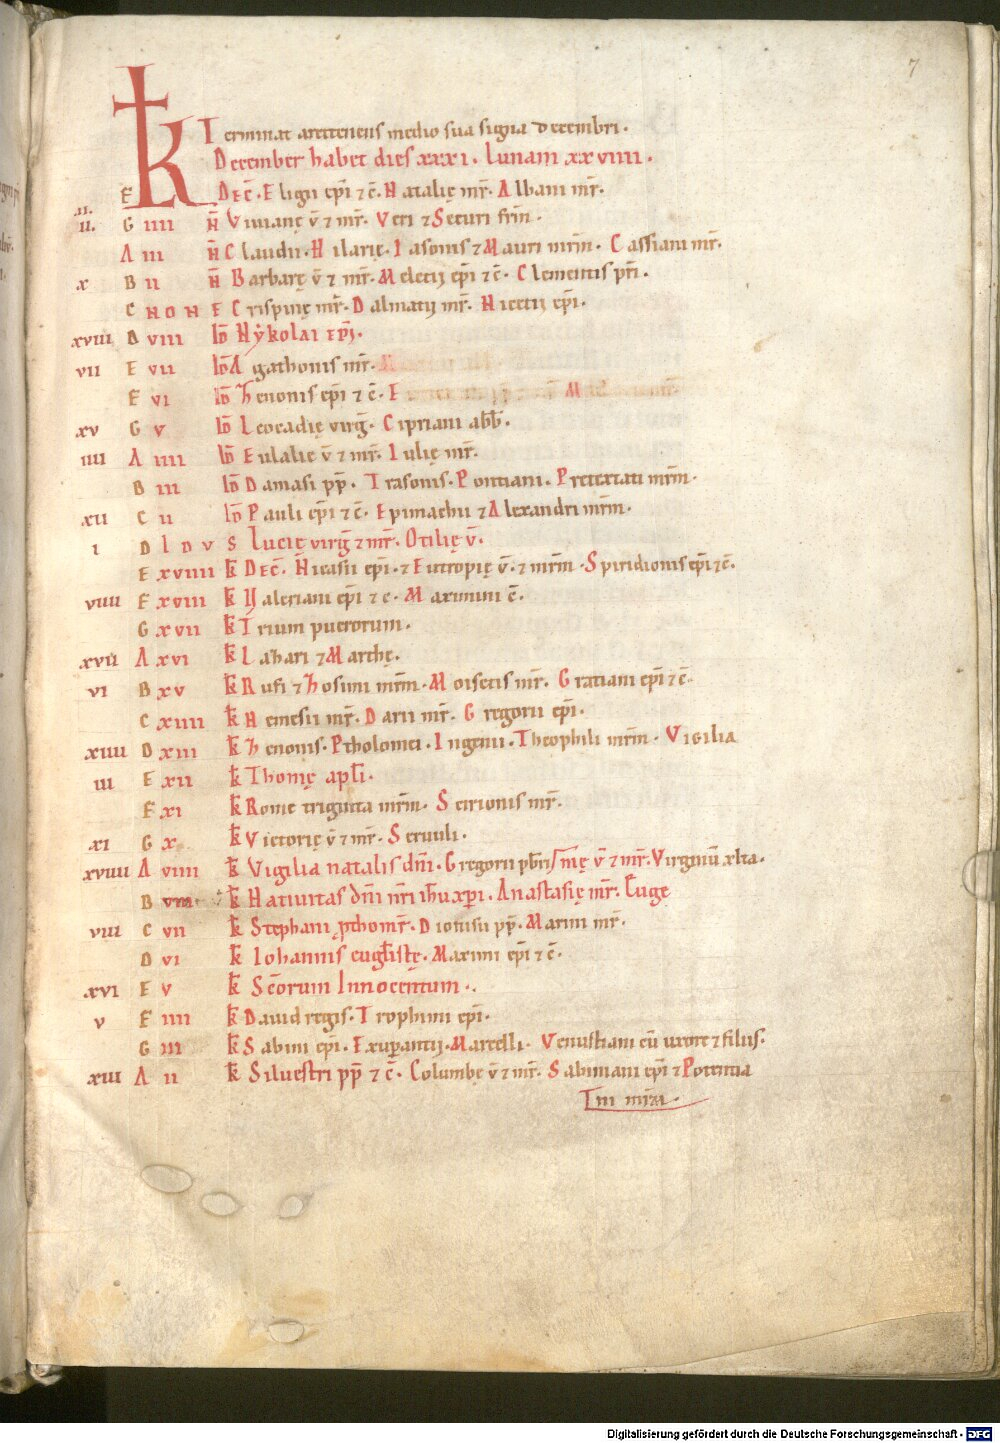 7
KL Terminat arcitenens medio sua signa decembri.
December habet dies xxxi. Lunam xxviiii.
F DEC. Eligii ep̄i ⁊ c̄. Natalię mr̄. Albani mr̄.
ii. G iiii N̄ Vivianę v̄ ⁊ mr̄. Veri ⁊ Securi frm̄.
A iii N̄ Claudii. Hilarię. Iasonis ⁊ Mauri mrm̄. Cassiani mr̄.
x B ii N̄ Barbarę v̄ ⁊ mr̄. Meletii ep̄i ⁊ c̄. Clementis pr̄i.
C NONE Crispinę mr̄. Dalmatii mr̄. Nicetii ep̄i.
xviii D viii Id̄ Nẏkolai ep̄i.
vii E vii Id̄ Agathonis mr̄.
F vi Id̄ Zenonis ep̄i ⁊ c̄. E
xv G v Id̄ Leocadię virḡ. Cipriani abb̄.
iiii A iiii Id̄ Eulalię v̄ ⁊ mr̄. Iulię mr̄.
B iii Id̄ Damasi pp̄. Trasonis. Pontiani. Pretextati mrm̄.
xii C ii Id̄ Pauli ep̄i ⁊ c̄. Epimachii ⁊ Alexandri mrm̄.
i D IDVS Lucię virḡ ⁊ mr̄. Otilię v̄.
E xviiii kł DEC. Nicasii ep̄i. ⁊ Eutropię v̄. ⁊ mrm̄. Spiridionis ep̄i ⁊ c̄.
viiii F xviii kł Valeriani ep̄i ⁊ c. Maximini c̄.
G xvii kł Trium puerorum.
xvii A xvi kł Lazari ⁊ Marthę.
vi B xv kł Rufi ⁊ Zosimi mrm̄. Moisetis mr̄. Gratiani ep̄i ⁊ c̄.
C xiiii kł Nemesii mr̄. Darii mr̄. Gregorii ep̄i.
xiiii D xiii kł Zenonis. Ptholomei. Ingenii. Theophili mrm̄. Vigilia
iii E xii kł Thomę apłi.
F xi kł Rome triginta mrm̄. Scirionis mr̄.
xi G x kł Victorię v̄ ⁊ mr̄. Servuli.
xviiii A viiii kł Vigilia natalis dn̄i. Gregorii pb̄ri. v̄ ⁊ mr̄. Virginū xlta.
B viii kł Nativitas dn̄i nr̄i ih̄u xp̄i. Anastasię mr̄. Eugę
viii C vii kł Stephani p̄thomr̄. Dionisii pp̄. Marini mr̄.
D vi kł Iohannis eugł̄istę. Maximi ep̄i ⁊ c̄.
xvi E v kł Sc̄orum Innocentum.
v F iiii kł David regis. Trophimi ep̄i.
G iii kł Sabini ep̄i. Exup̄antii. Marcelli. Venustiani cū uxore ⁊ filiis.
xiii A ii kł Silvestri pp̄ ⁊ c̄. Columbę v̄ ⁊ mr̄. Sabiniani ep̄i ⁊ Potentia
Digitalisierung gefördert durch die Deutsche Forschungsgemeinschaft - DFG